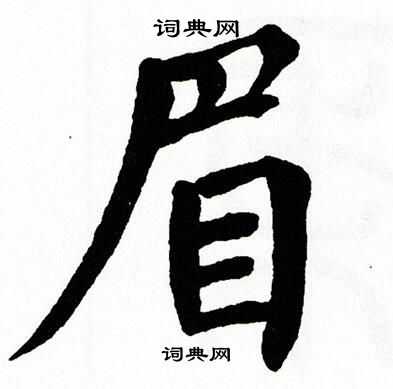 词典网
眉
词典网